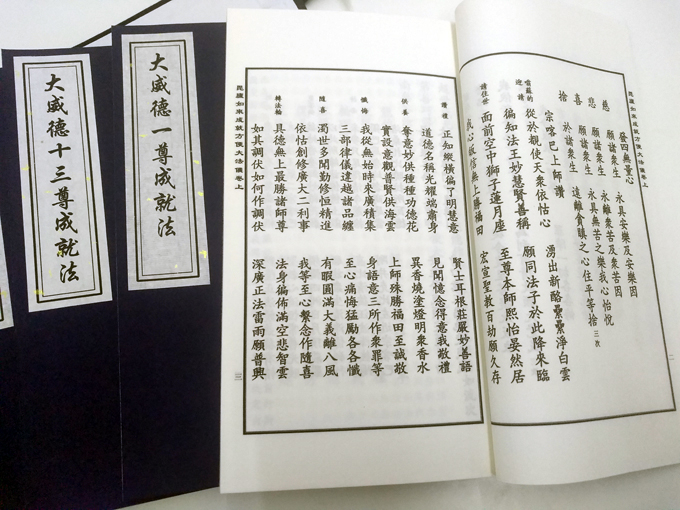 大威德十三尊成就法
大威德一尊成就法
毘盧如來成就方便大法儀卷上
發四無量心
慈 願諸眾生 永具安樂及安樂因
悲 願諸眾生 永離眾苦及眾苦因
喜 願諸眾生 永具無苦之樂我心怡悅
捨 於諸眾生 遠離貪瞋之心住平等捨 三次
宗喀巴上師讚 湧出新酪纍纍淨白雲
噶蘇的
迎請 從於覩使天眾依怙心
徧知法王妙慧賢善稱 願同法子於此降來臨
請住世 面前空中獅子蓮月座 至尊本師熙怡晏然居
我心敬信無上勝福田 宏宣聖教百劫願久存
讚禮 正知縱橫徧了明慧意 賢士耳根莊嚴妙善語
道德名稱光耀端肅身 見聞憶念得意我敬禮
供養 奪意妙供種種功德花 異香燒塗燈明眾香水
實設意觀普賢供海雲 上師殊勝福田至誠敬
懺悔 我從無始時來廣積集 身語意三所作眾罪等
三部律儀違越諸品纏 至心痛悔猛勵各各懺
隨喜 濁世多聞勤修恒精進 有暇圓滿大義離八風
依怙創修廣大二利事 我等至心繫念作隨喜
轉法輪 具德無上最勝諸師尊 法身徧佈滿空悲智雲
如其調伏如何作調伏 深廣正法雷雨願普興
毘盧如來成就方便大法儀卷上
三